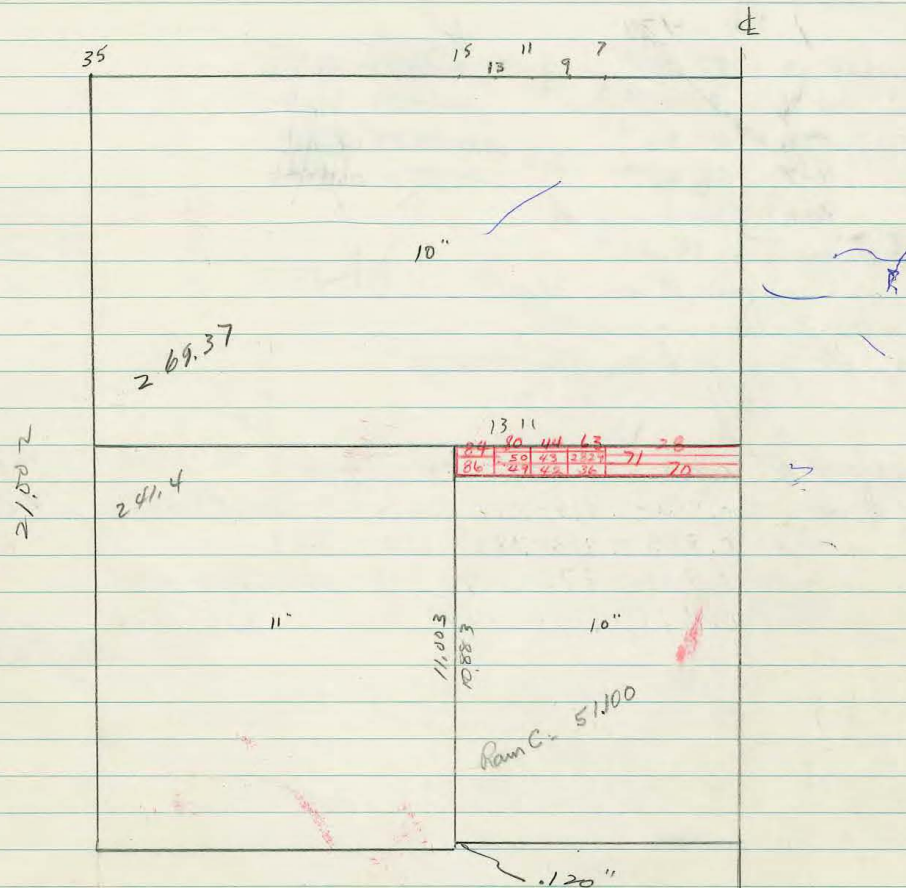 35 15 13 11 9 7 ℄
10"
2 69.37
21.00 2
13 11
84 80 44 63 28
50 43 2829 71
86 49 42 36 70
2 41.4
11" 11.003 10.883 10"
Ram C = 51.100
.120"